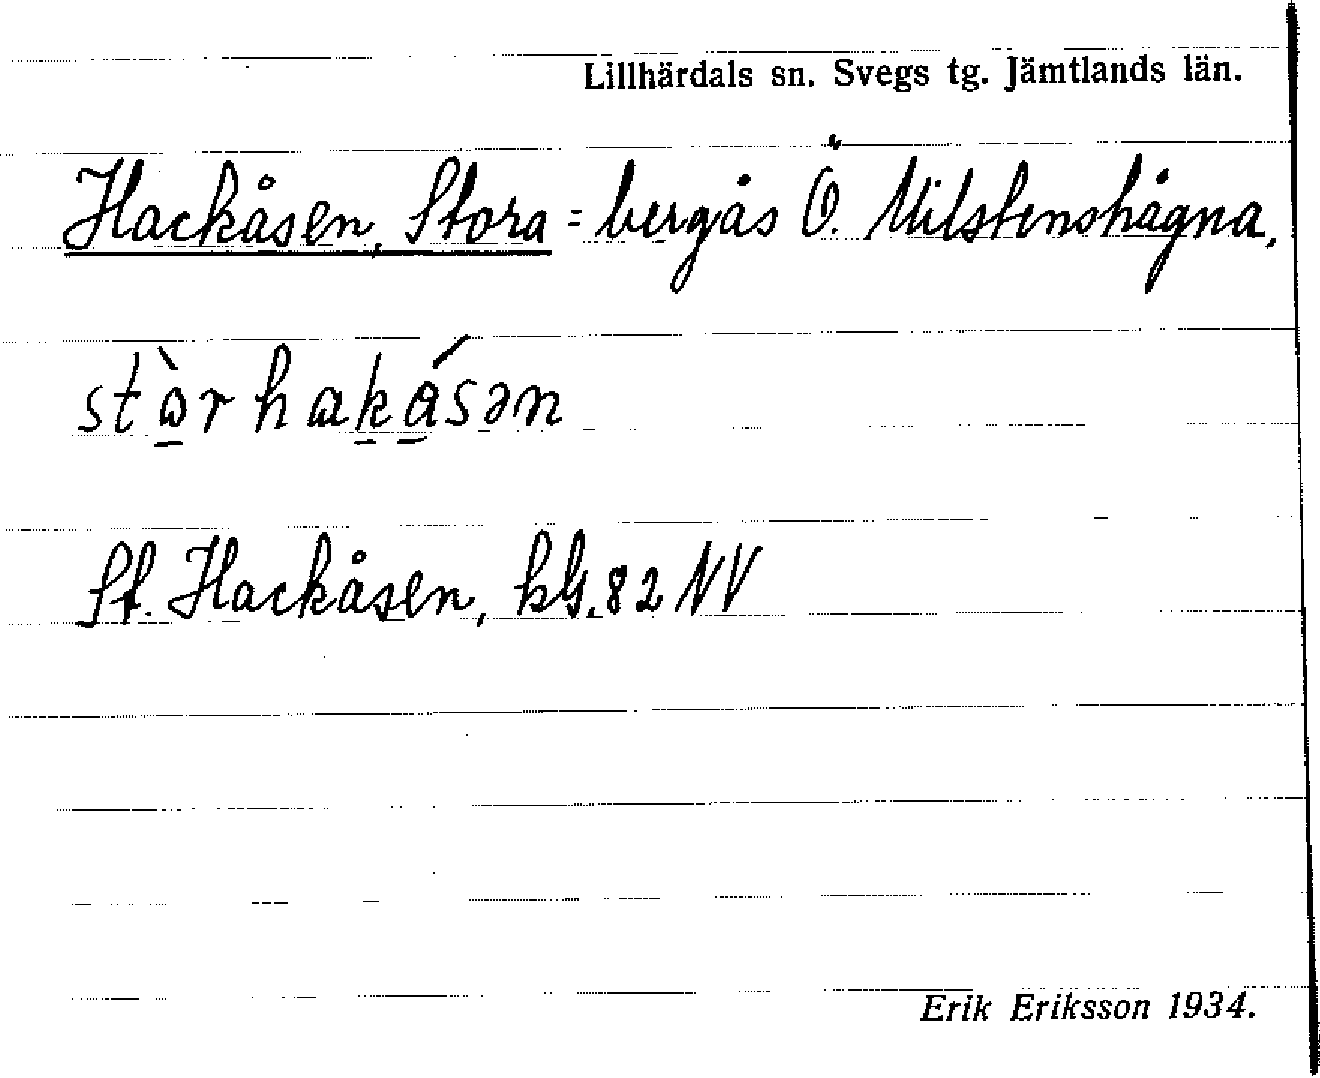 Lillhärdals sn. Svegs tg. Jämtlands län.
Hackåsen, Stora = bergås Ö. Milstenshågna.
stò̱rhaḵá̱sən
St. Hackåsen, kbl. 82 NV
Erik Eriksson 1934.